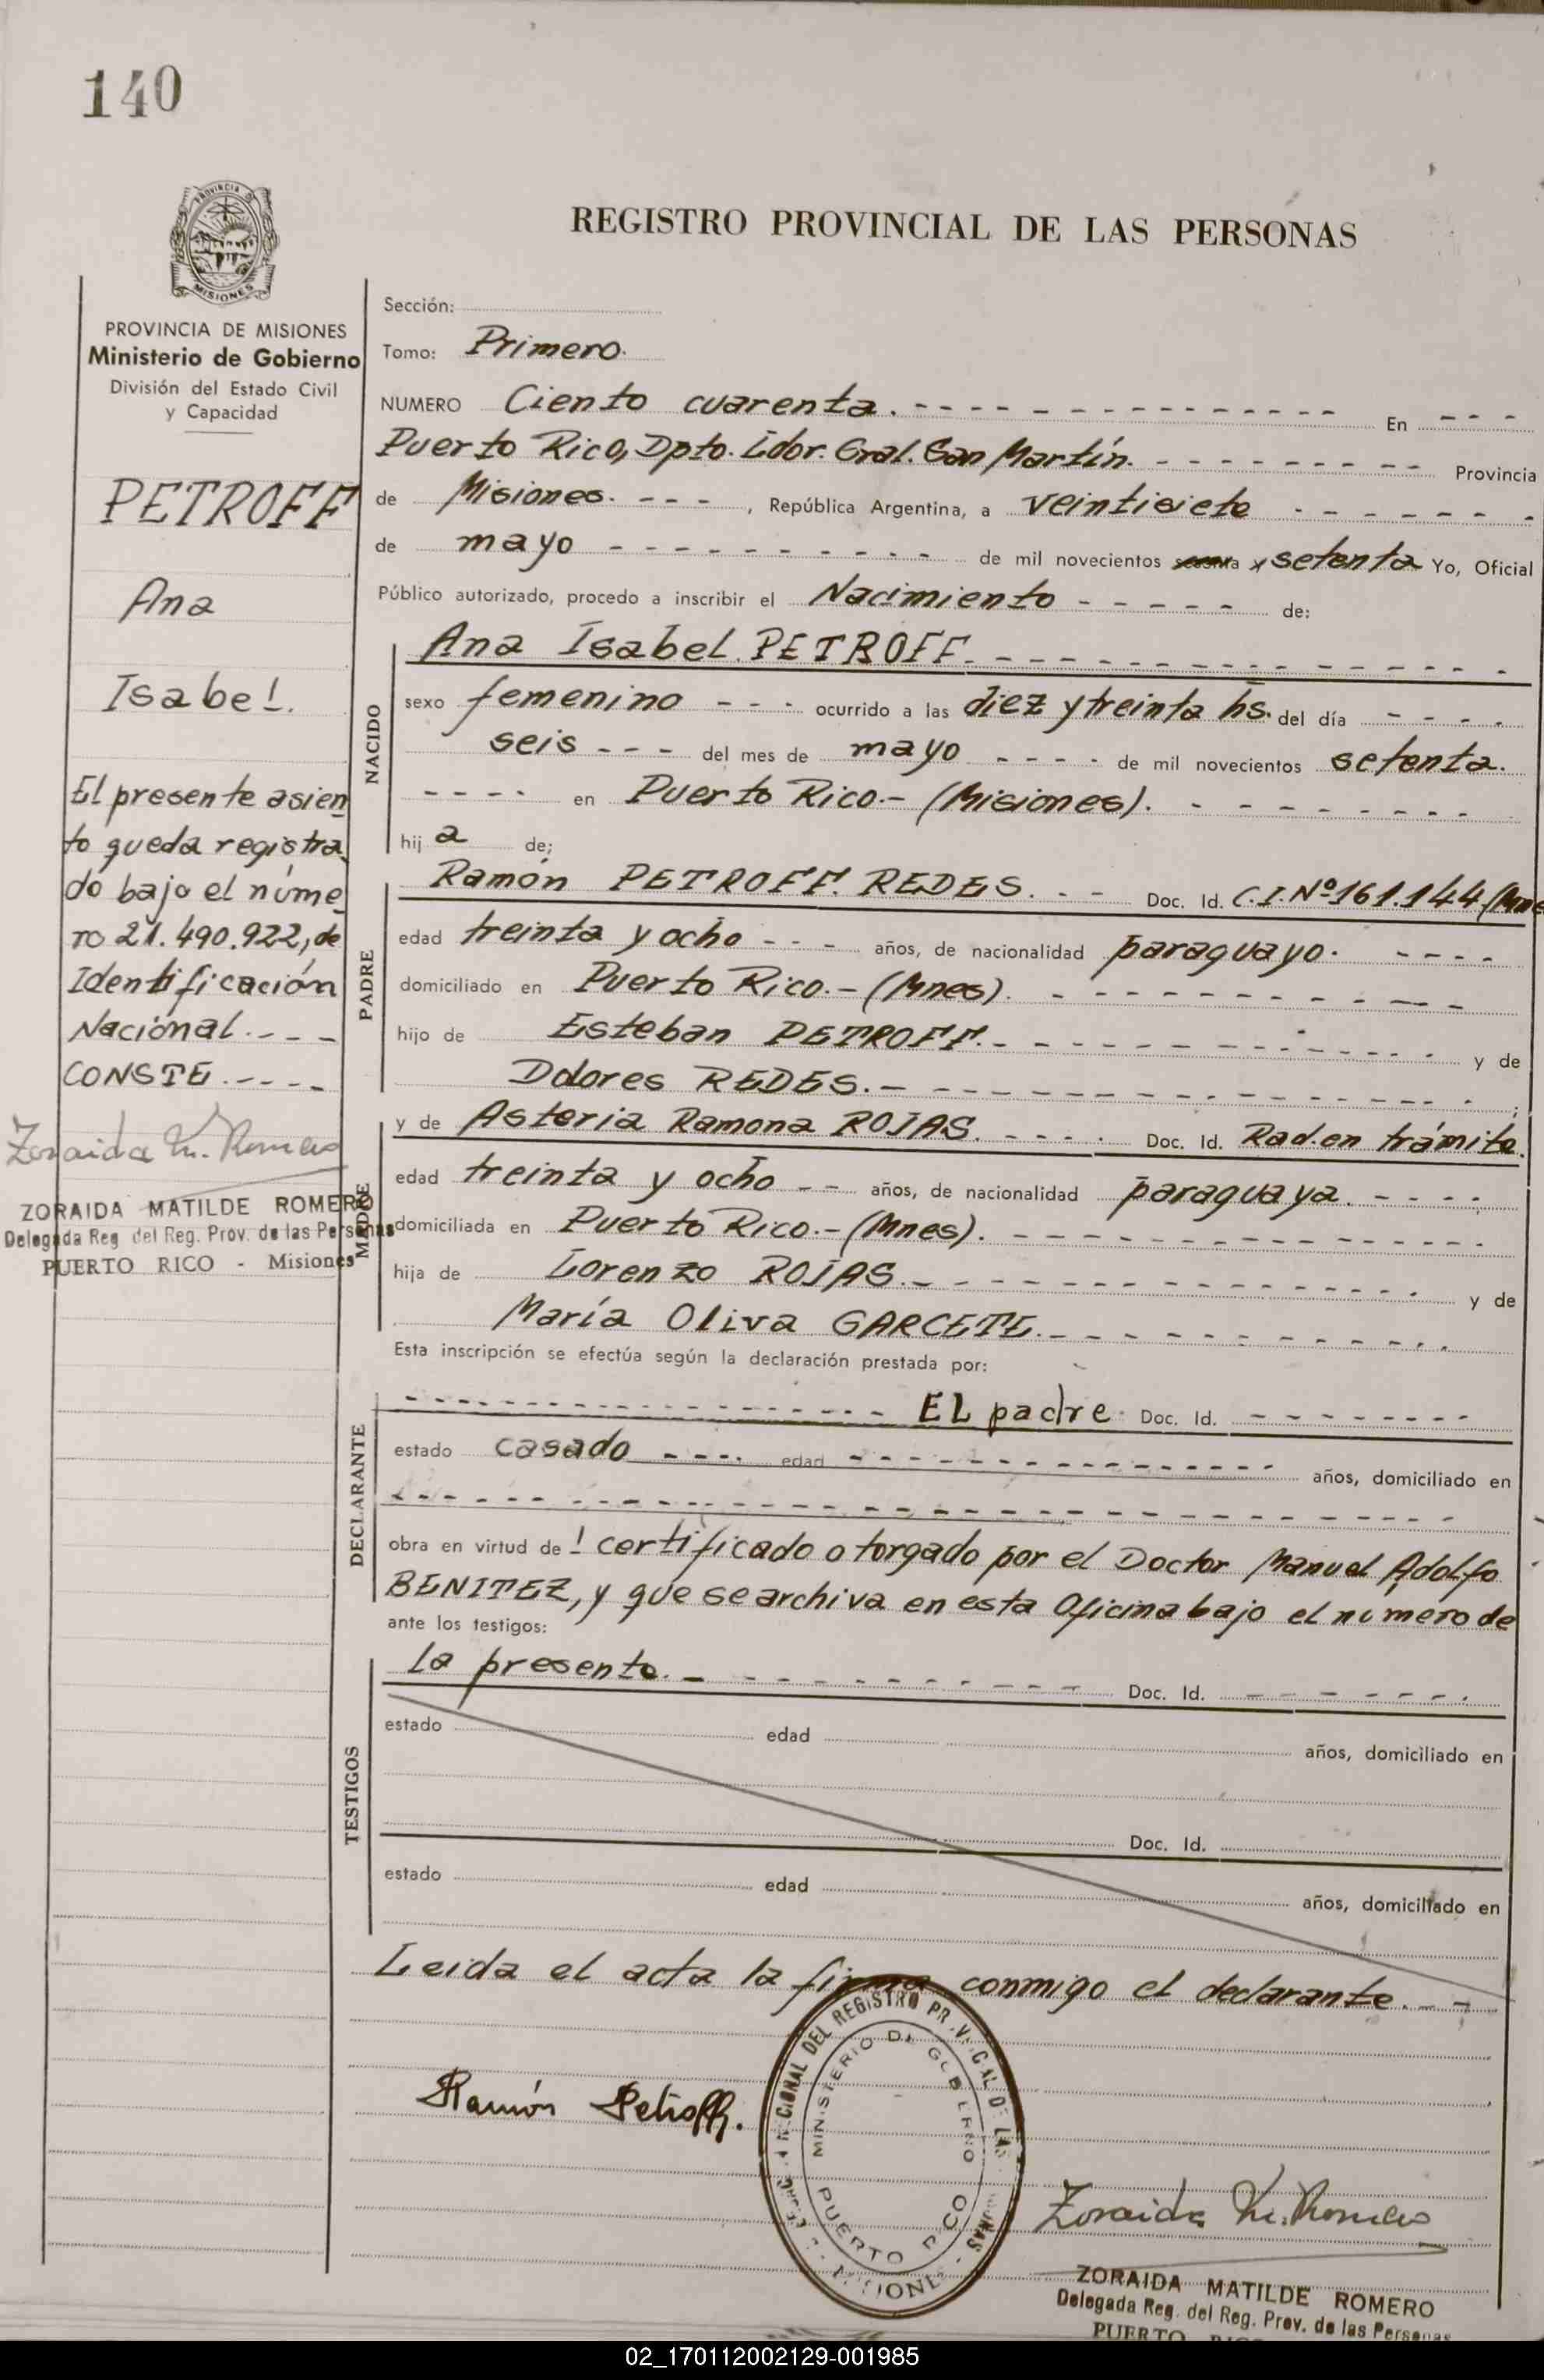 140
PROVINCIA
MISIONES
REGISTRO PROVINCIAL DE LAS PERSONAS
PROVINCIA DE MISIONES
Ministerio de Gobierno
División del Estado Civil
y Capacidad
PETROFF
Ana
Isabel.
El presente asien
to queda registra
do bajo el núme
ro 21.490.922, de
Identificación
Nacional.---
CONSTE.----
Zoraida M. Romero
ZORAIDA MATILDE ROMERO
Delegada Reg del Reg. Prov. de las Personas
PUERTO RICO - Misiones
Sección:
Tomo: Primero.
NUMERO Ciento cuarenta. - - - - En - - -
Puerto Rico, Dpto. Ldor. Gral. San Martín. - - - - Provincia
de Misiones. - - - , República Argentina, a veintisiete - - - -
de mayo - - - - de mil novecientos sesenta y setenta Yo, Oficial
Público autorizado, procedo a inscribir el Nacimiento - - - - de:
NACIDO
Ana Isabel PETROFF. - - - -
sexo femenino - - - ocurrido a las diez y treinta hs. del día - - - -
seis - - - del mes de mayo - - - - de mil novecientos setenta.
- - - - en Puerto Rico.- (Misiones). - - - -
hij a de;
PADRE
Ramón PETROFF. REDES. - - Doc. Id. C.I. Nº 161.144 (Mne
edad treinta y ocho - - - años, de nacionalidad paraguayo. - - - -
domiciliado en Puerto Rico.- (Mnes). - - - -
hijo de Esteban PETROFF. - - - - y de
Dolores REDES. - - - - ;
MADRE
y de Asteria Ramona ROJAS. - - - - Doc. Id. Rad. en trámite.
edad treinta y ocho - - años, de nacionalidad paraguaya. - - - -
domiciliada en Puerto Rico.- (Mnes). - - - -
hija de Lorenzo ROJAS. - - - - y de
María Oliva GARCETE. - - - -
Esta inscripción se efectúa según la declaración prestada por:
DECLARANTE
- - - - El padre. Doc. Id. - - - -
estado casado - - - . edad - - - - años, domiciliado en
- - - -
obra en virtud de l certificado otorgado por el Doctor Manuel Adolfo
BENITEZ, y que se archiva en esta Oficina bajo el número de
ante los testigos:
TESTIGOS
la presente. - - - - Doc. Id. - - - -
estado edad años, domiciliado en
Doc. Id.
estado edad años, domiciliado en
Leida el acta la firma conmigo el declarante. - -
Ramón Petroff.
REGIONAL DEL REGISTRO PROVINCIAL DE LAS
MINISTERIO DE GOBIERNO
PUERTO RICO
MISIONES
Zoraida M. Romero
ZORAIDA MATILDE ROMERO
Delegada Reg. del Reg. Prov. de las Personas
PUERTO
02_170112002129-001985